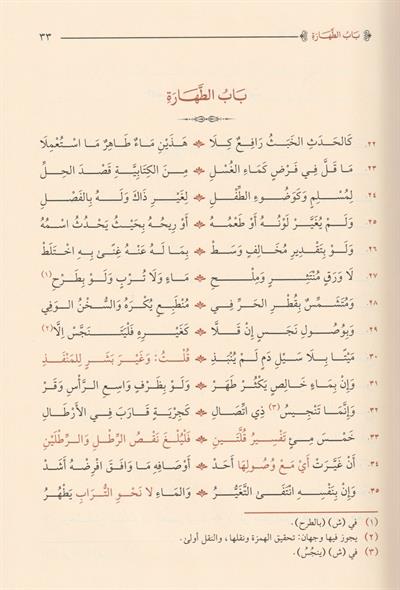 بَابُ الطَّهَارَةِ ٣٣
بَابُ الطَّهَارَةِ
٢٢. كَالحَدَثِ الخَبَثُ رَافِعٌ كِلَا هَذَيْنِ مَاءٌ طَاهِرٌ مَا اسْتُعْمِلَا
٢٣. مَا قَلَّ فِي فَرْضٍ كَمَاءِ الغُسْلِ مِنَ الكِتَابِيَّةِ قَصْدَ الحِلِّ
٢٤. لِمُسْلِمٍ وَكَوُضُوءِ الطِّفْلِ لِغَيْرِ ذَاكَ وَلَهُ بِالفَصْلِ
٢٥. وَلَمْ يُغَيَّرْ لَوْنُهُ أَوْ طَعْمُهُ أَوْ رِيحُهُ بِحَيْثُ يَحْدُثُ اسْمُهُ
٢٦. وَلَوْ بِتَقْدِيرِ مُخَالِفٍ وَسَطْ بِمَا لَهُ عَنْهُ غِنًى بِهِ اخْتَلَطْ
٢٧. لَا وَرَقٍ مُنْتَثِرٍ وَمِلْحِ مَاءٍ وَلَا تُرْبٍ وَلَوْ بِطَرْحِ(١)
٢٨. وَمُتَشَمِّسٌ بِقُطْرِ الحَرِّ فِي مُنْطَبِعٍ يُكْرَهُ وَالسُّخْنُ الوَفِي
٢٩. وَبِوُصُولِ نَجَسٍ إِنْ قَلَّا كَغَيْرِهِ فَلْيَتَنَجَّسْ اِلَّا(٢)
٣٠. مَيْتًا بِلَا سَيْلِ دَمٍ لَمْ يُنْبَذِ قُلْتُ: وَغَيْرَ بَشَرٍ لِلمَنْفَذِ
٣١. وَإِنْ بِمَاءٍ خَالِصٍ يَكْثُرْ طَهَرْ وَلَوْ بِظَرْفٍ وَاسِعِ الرَّأْسِ وَقَرّْ
٣٢. وَإِنَّمَا تَنْجِيسُ(٣) ذِي اتِّصَالِ كَجِرْيَةٍ قَارَبَ فِي الأَرْطَالِ
٣٣. خَمْسَ مِئٍ تَفْسِيرُ قُلَّتَيْنِ فَلْيُلْغَ نَقْصُ الرِّطْلِ وَالرِّطْلَيْنِ
٣٤. أَنْ غَيَّرَتْ أَيْ مَعْ وُصُولِهَا أَحَدْ أَوْصَافِهِ مَا وَافَقَ افْرِضْهُ أَشَدّْ
٣٥. وَإِنْ بِنَفْسِهِ انْتَفَى التَّغَيُّرُ وَالمَاءِ لَا نَحْوِ التُّرَابِ يَطْهُرُ
(١) في (ش) (بالطرح).
(٢) يجوز فيها وجهان: تحقيق الهمزة ونقلها، والنقل أولىٰ.
(٣) في (ش) (ينجُسُ).